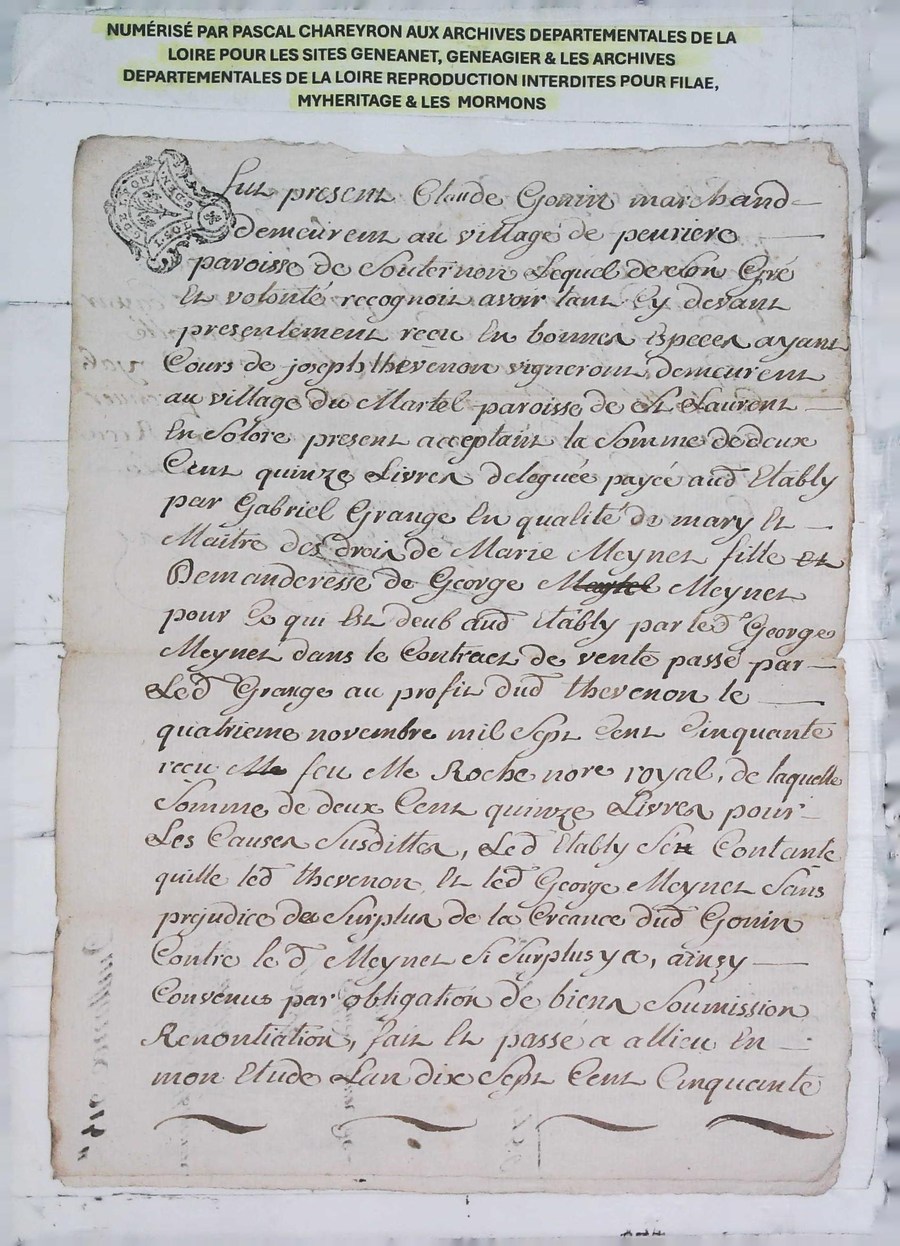 NUMÉRISÉ PAR PASCAL CHAREYRON AUX ARCHIVES DEPARTEMENTALES DE LA
LOIRE POUR LES SITES GENEANET, GENEAGIER & LES ARCHIVES
DEPARTEMENTALES DE LA LOIRE REPRODUCTION INTERDITES POUR FILAE,
MYHERITAGE & LES MORMONS
Fut present Claude Gonin marchand
demeurent au village de peuriere
paroisse de Souternon Lequel de son Gré
Et volonté recognoit avoir tant Cy devant
presentement reçu En bonnes Especes ayant
Cours de joseph thevenon vigneront demeurent
au village du Martel paroisse de St Laurent
En Solore present acceptant la Somme de deux
Cent quinze Livres deleguée payée aud Etably
par Gabriel Grange En qualité de mary Et
Maitre des droits de Marie Meynet fille et
Demanderesse de George Martel Meynet
pour Ce qui Est deub aud Etably par led George
Meynet dans le Contract de vente passé par
Led Grange au profit dud thevenon le
quatrieme novembre mil Sept Cent Cinquante
recu Me feu Me Roche nore royal, de laquelle
Somme de deux Cent quinze Livres pour
Les Causes Susdittes, Led Etably Sen Contante
quitte led thevenon Et led George Meynet Sans
prejudice du Surplus de la Creance dud Gonin
Contre le d Meynet Si Surplus y a, ainsy
Convenus par obligation de biens Soumission
Renontiation, fait Et passé a allieu En
mon Etude Lan dix Sept Cent Cinquante